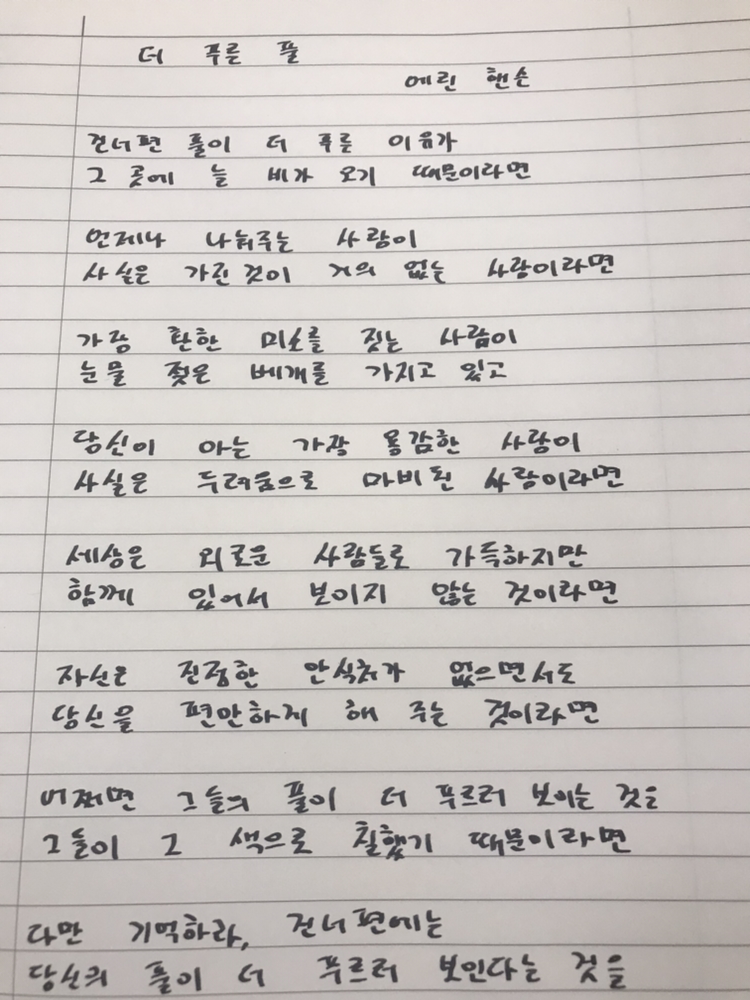 더 푸른 풀
에린 핸슨
건너편 풀이 더 푸른 이유가
그 곳에 늘 비가 오기 때문이라면
언제나 나눠주는 사람이
사실은 가진 것이 거의 없는 사람이라면
가장 환한 미소를 짓는 사람이
눈물 젖은 베개를 가지고 있고
당신이 아는 가장 용감한 사람이
사실은 두려움으로 마비된 사람이라면
세상은 외로운 사람들로 가득하지만
함께 있어서 보이지 않는 것이라면
자신은 진정한 안식처가 없으면서도
당신을 편안하게 해 주는 것이라면
어쩌면 그들의 풀이 더 푸르러 보이는 것은
그들이 그 색으로 칠했기 때문이라면
다만 기억하라, 건너편에는
당신의 풀이 더 푸르러 보인다는 것을